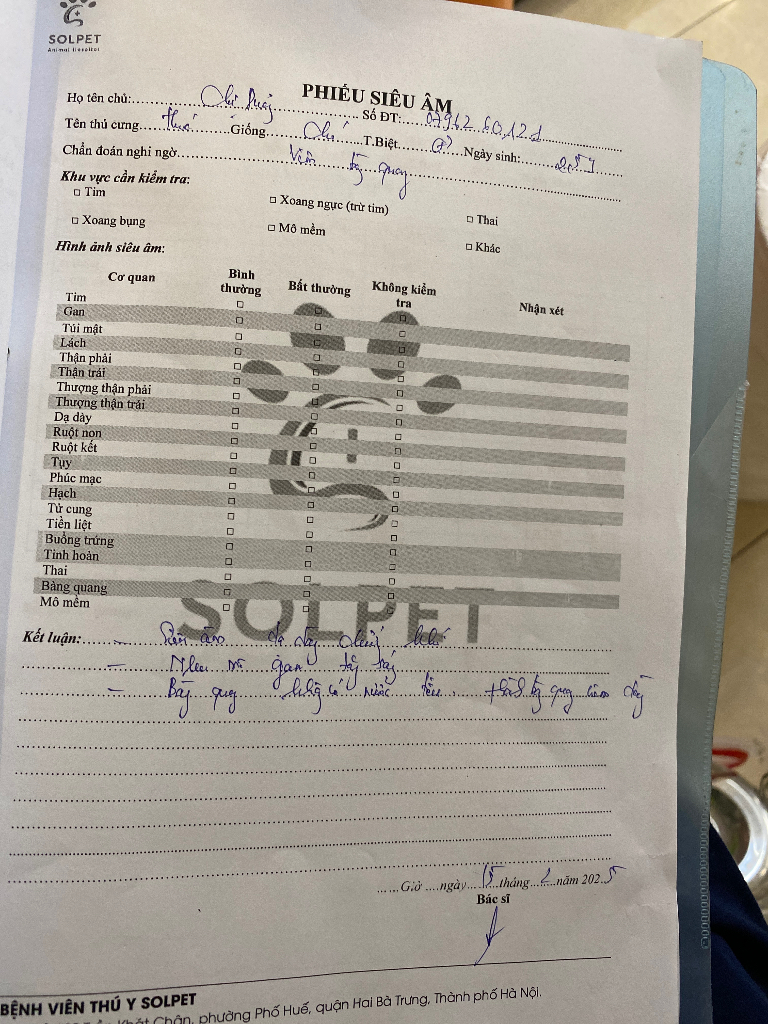 SOLPET
Animal Hospital
PHIẾU SIÊU ÂM
Họ tên chủ: Số ĐT: 07962 60.121
Tên thú cưng Giống Chó T.Biệt Ngày sinh:
Chẩn đoán nghi ngờ Viêm bàng quang
Khu vực cần kiểm tra:
□ Tim □ Xoang ngực (trừ tim) □ Thai
□ Xoang bụng □ Mô mềm □ Khác
Hình ảnh siêu âm:
Cơ quan Bình thường Bất thường Không kiểm tra Nhận xét
Tim □ □ □
Gan □ □ □
Túi mật □ □ □
Lách □ □ □
Thận phải □ □ □
Thận trái □ □ □
Thượng thận phải □ □ □
Thượng thận trái □ □ □
Dạ dày □ □ □
Ruột non □ □ □
Ruột kết □ □ □
Tụy □ □ □
Phúc mạc □ □ □
Hạch □ □ □
Tử cung □ □ □
Tiền liệt □ □ □
Buồng trứng □ □ □
Tinh hoàn □ □ □
Thai □ □ □
Bàng quang □ □ □
Mô mềm □ □ □
SOLPET
Kết luận: - Siêu âm dạ dày chứa khí
- Nhu mô gan
- Bàng quang không có nước tiểu. thành bàng quang dày
Giờ ngày 15 tháng 2 năm 2025
Bác sĩ
BỆNH VIỆN THÚ Y SOLPET
Khát Chân, phường Phố Huế, quận Hai Bà Trưng, Thành phố Hà Nội.